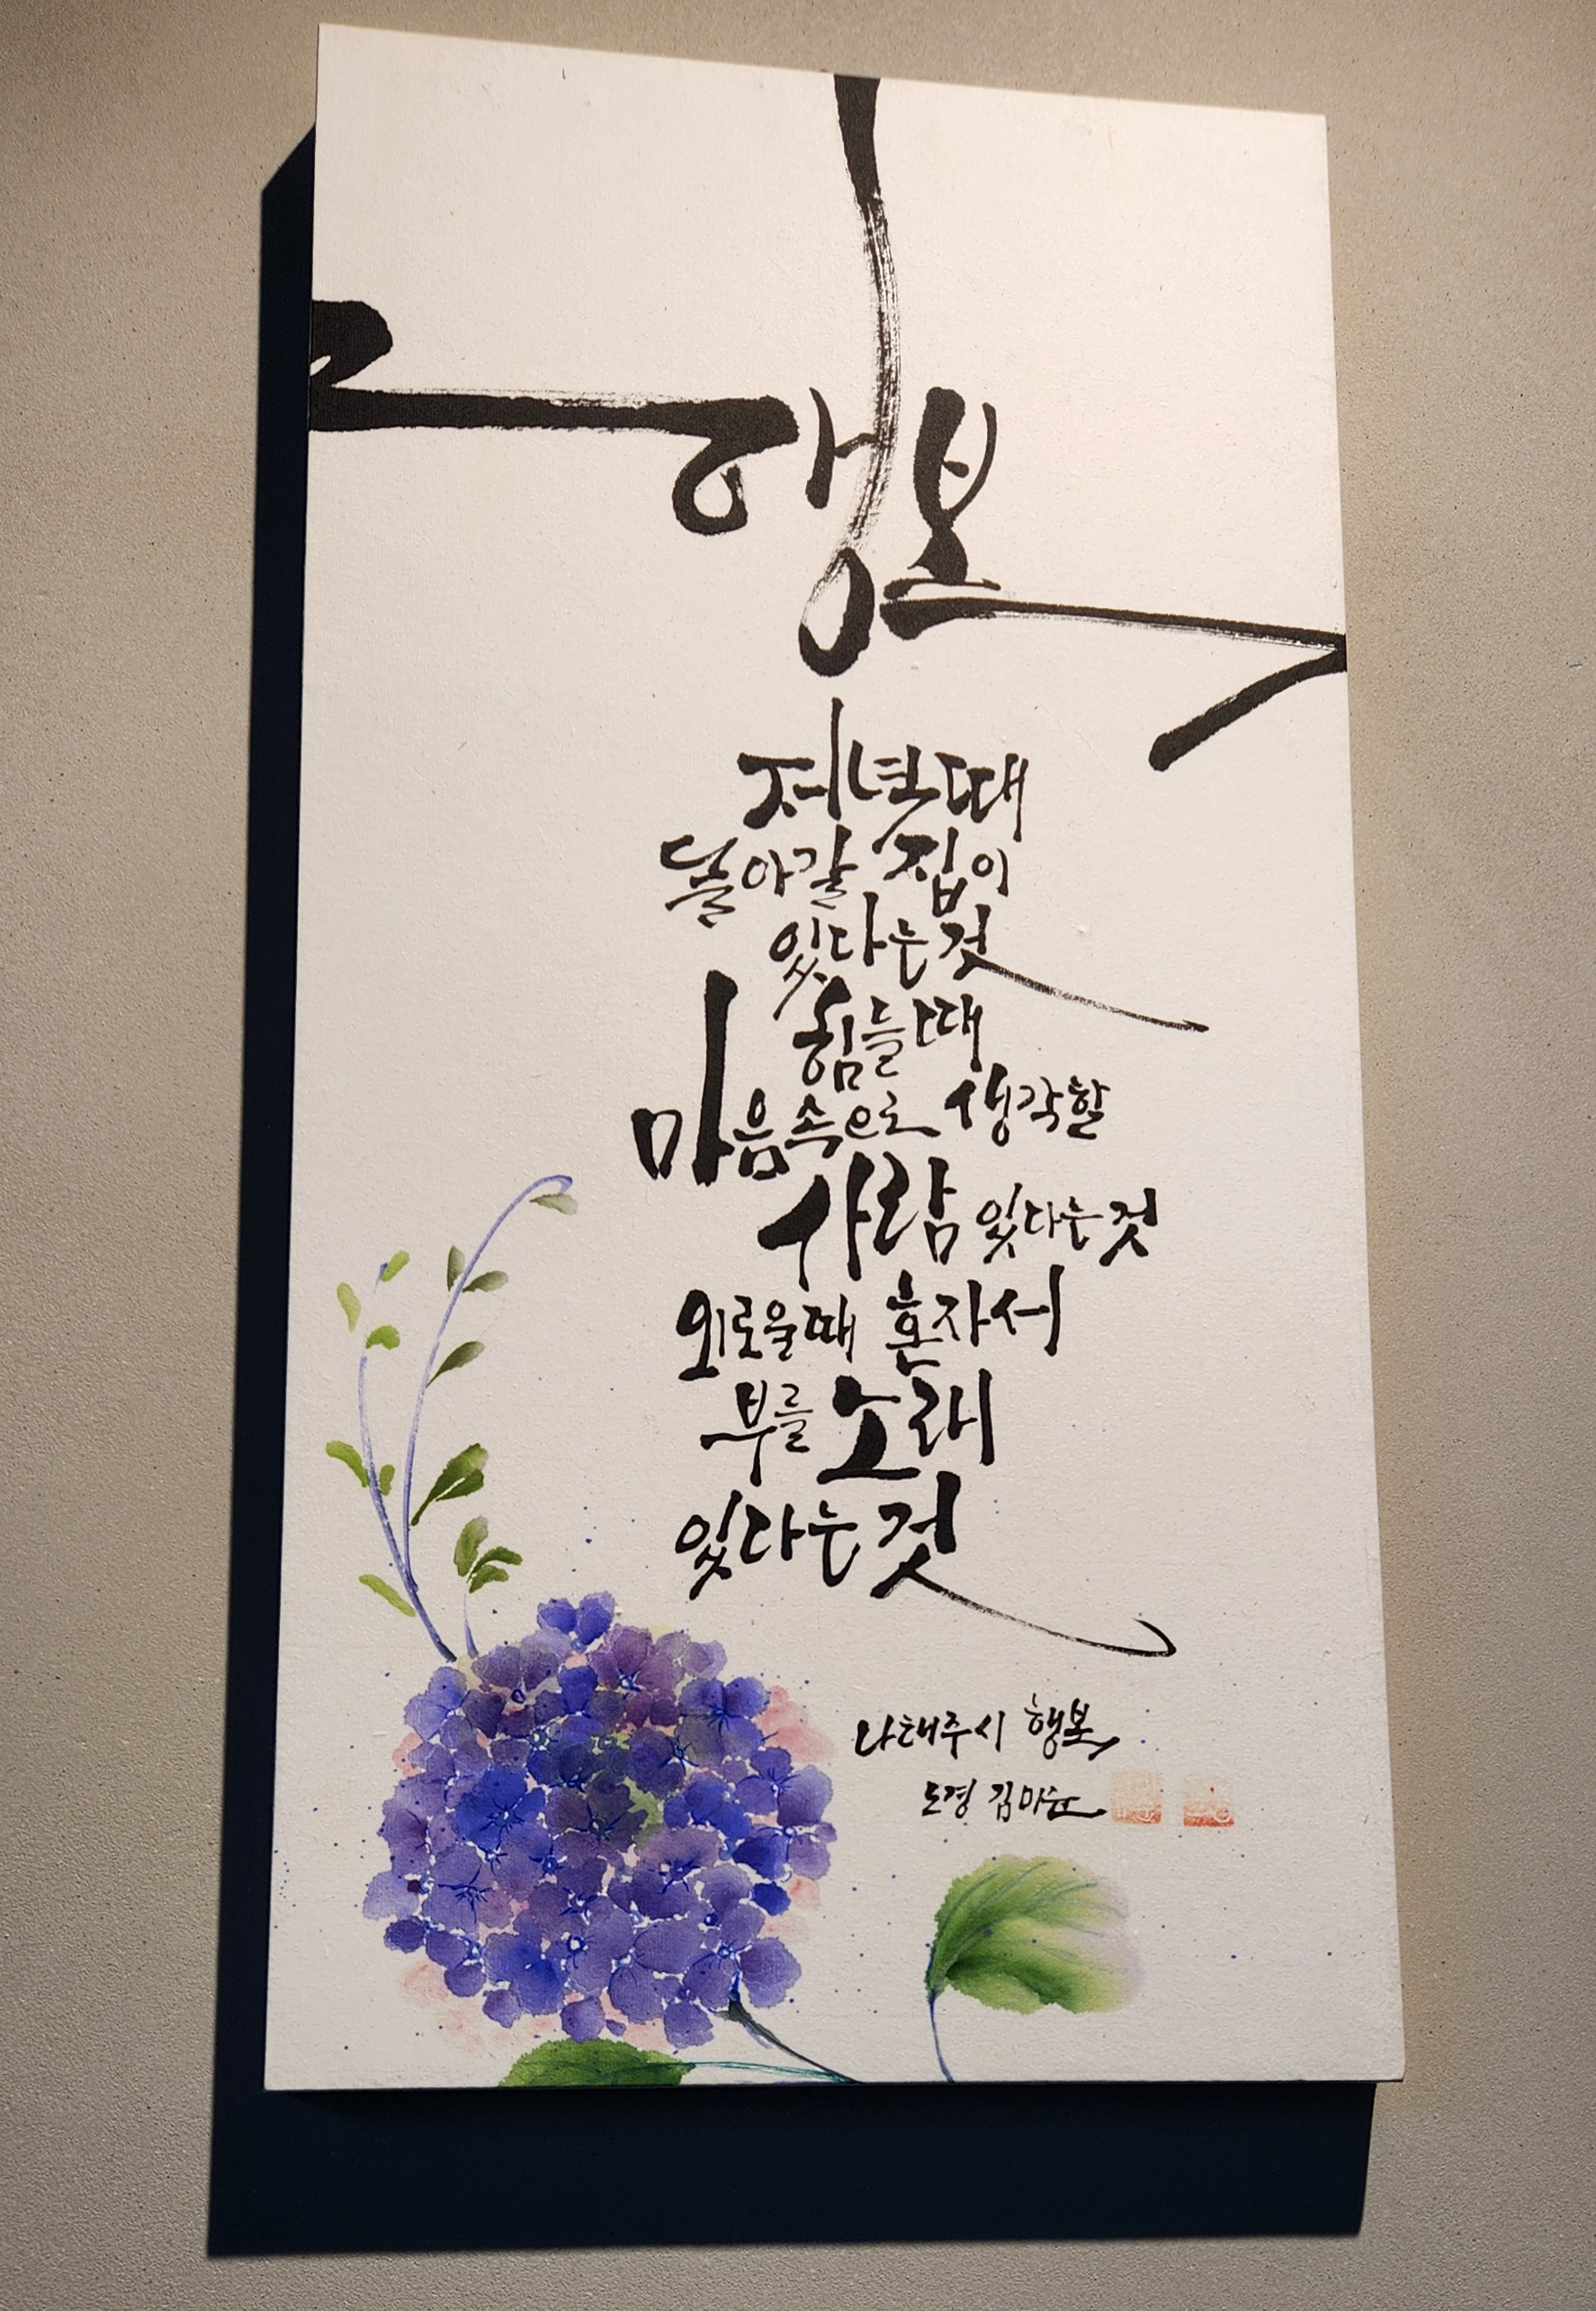 행복
저녁때
돌아갈 집이
있다는것
힘들때
마음속으로 생각할
사람 있다는것
외로울때 혼자서
부를 노래
있다는것
나태주시 행복
도경 김미